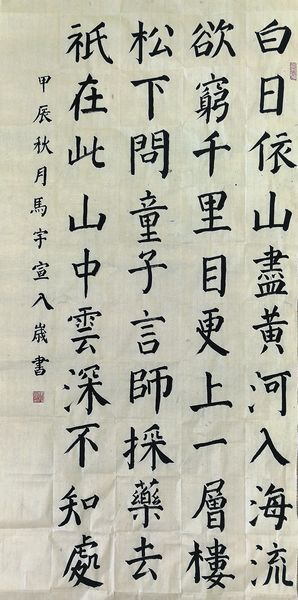 白日依山盡黃河入海流
欲窮千里目更上一層樓
松下問童子言師採藥去
祇在此山中雲深不知處
甲辰秋月馬宇宣八歲書